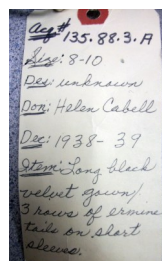 Acq# 135.88.3.A
Size: 8-10
Des: unknown
Don: Helen Cabell
Dec: 1938-39
Item: Long black
velvet gown/
3 rows of ermine
tails on short
sleeves.